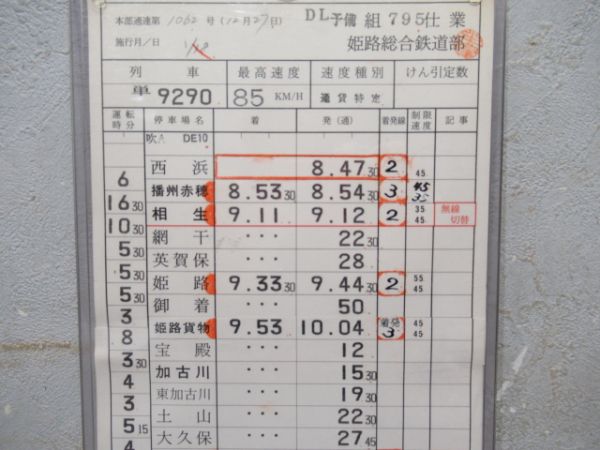 本部通達第1062号(12月27日) DL予備組795仕業
施行月/日 1/28 姫路総合鉄道部
列車 最高速度 速度種別 けん引定数
単9290 85KM/H 通貨特定
運転時分 停車場名 着 発(通) 着発線 制限速度 記事
吹A DE10
西浜 8.47 30 2 45
6
播州赤穂 8.53 30 8.54 30 3 45 35
16 30
相生 9.11 9.12 2 35 45 無線切替
10 30
網干 ･･･ 22 30
5 30
英賀保 ･･･ 28
5 30
姫路 9.33 30 9.44 30 2 55 45
5 30
御着 ･･･ 50
3
姫路貨物 9.53 10.04 着発3 45 45
8
宝殿 ･･･ 12
3 30
加古川 ･･･ 15 30
4
東加古川 ･･･ 19 30
3
土山 ･･･ 22 30
5 15
大久保 ･･･ 27 45
4